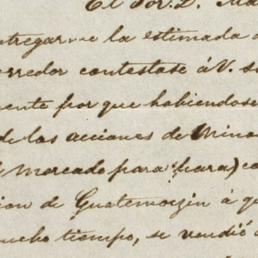 El Sor. D. Ma
ntregarme la estimada
rredor contestase á V. s
mente por que habiendose
de las acciones de Mina
Mercado para (para) co
ion de Guatemozin á q
ucho tiempo, se vendió